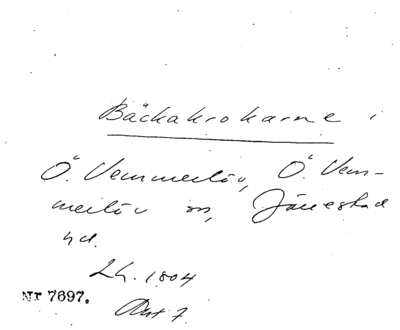 Bäckakrokarne i
Ö. Vemmerlöv, Ö. Vem-
merlöv sn, Järrestad
hd.
Lh. 1804
Nr 7697. Akt 7